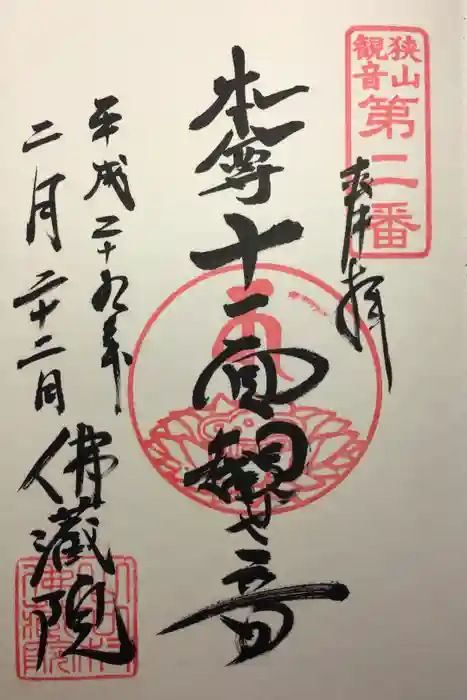 狭山観音
第二番
奉拝
本尊十一面観世音
平成二十九年
二月二十二日
佛蔵院